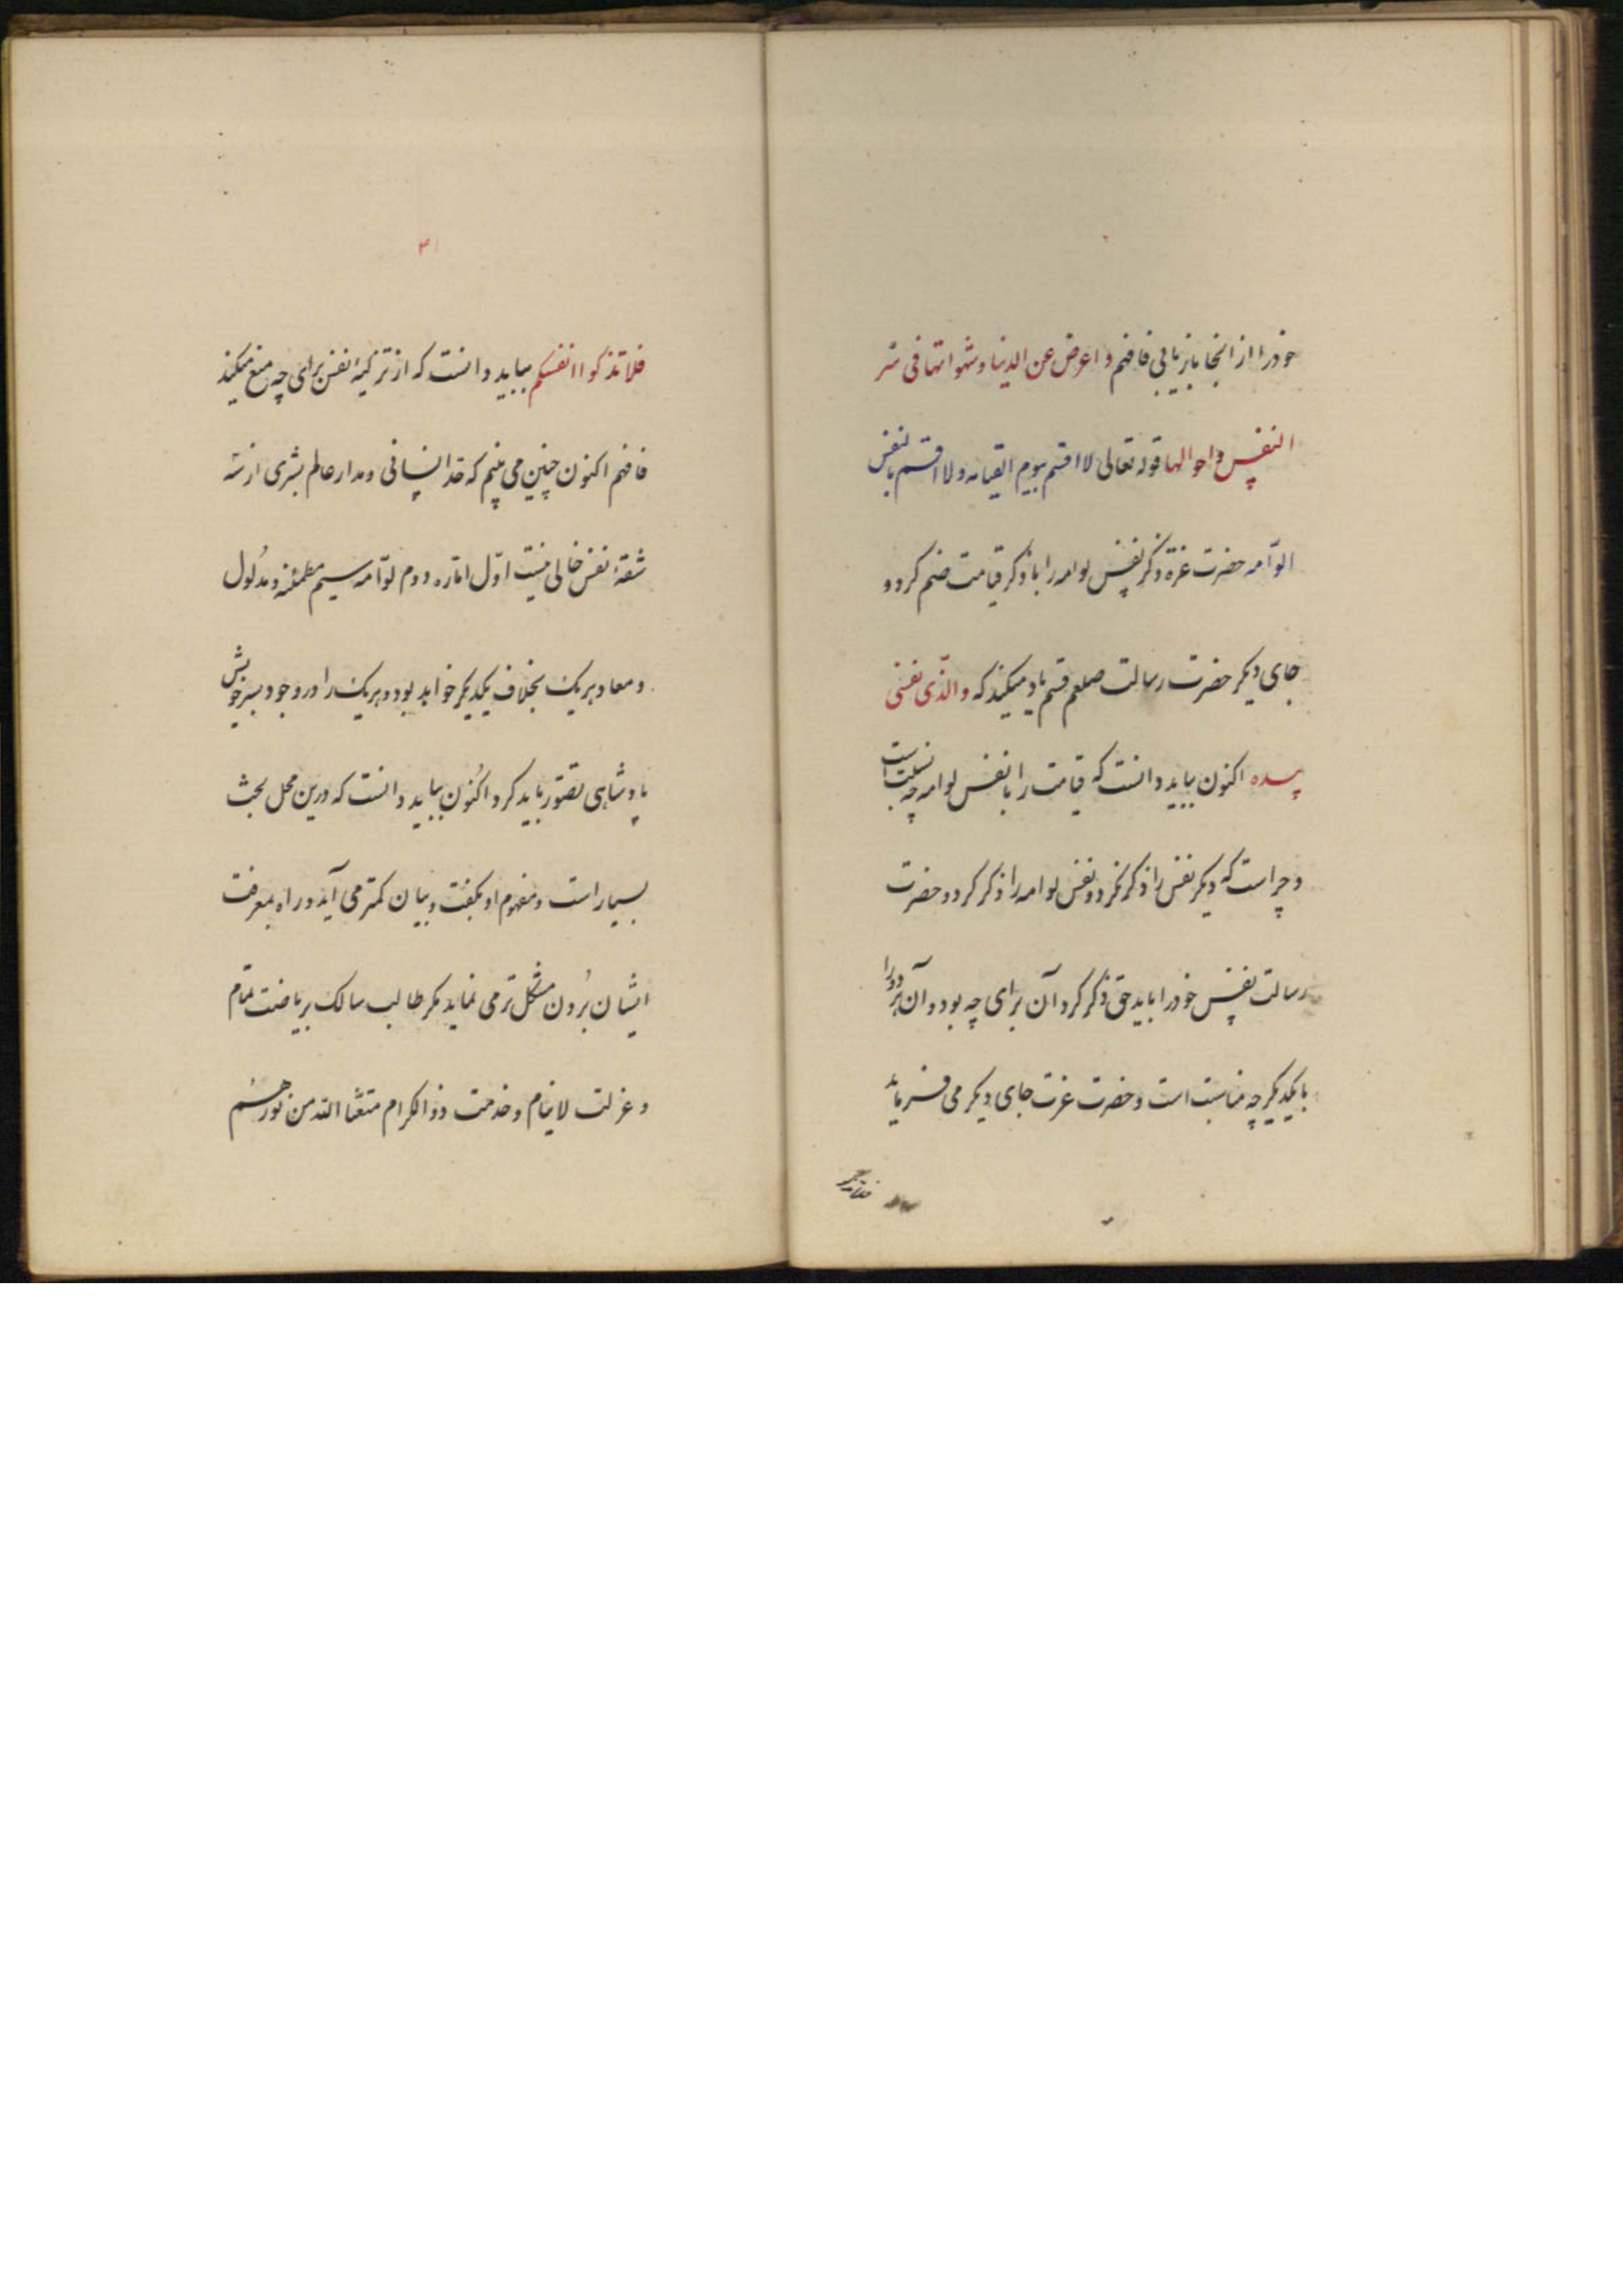 خود را از انجا بازیابی فافهم و اعرض عن الدنیا و شهواتها فی شر
النفس و احوالها قوله تعالی لا اقسم بیوم القیامه ولا اقسم بالنفس
الوّامه حضرت عزة ذکر نفس لوامه را با ذکر قیامت ضم کرد و
جای دیکر حضرت رسالت صلعم قسم یاد میکند که والذّی نفسی
بیده اکنون بباید دانست که قیامت را با نفس لوامه چه نسبت است
و چراست که دیکر نفس را ذکر نکرد و نفس لوامه را ذکر کرد و حضرت
رسالت نفس خود را بایدحق ذکر کرد آن برای چه بود و آن هر دو را
با یکدیکر چه مناسبت است و حضرت عزت جای دیکر می فرماید
فلا تذکوا
۳۱
فلا تذکوا انفسکم بباید دانست که از تزکیۀ نفس برای چه منع میکند
فافهم اکنون چنین می بینم که قد انسانی و مدار عالم بشری از سه
شقۀ نفس خالی نیست اوّل امّاره دوم لوّامه سیم مطمئنه و مدلول
و معاد هریک بخلاف یکدیکر خواهد بود و هریک را در وجود بسر خویش
پادشاهی تصوّر باید کرد و اکنون بباید دانست که درین محل بحث
بسیار است و مفهوم او بکفت و بیان کمتر می آید و راه بمعرفت
ایشان برُدن مشکل تر می نماید مکر طالب سالک بریاضت تمام
و عزلت لاینام و خدمت ذو الکرام متعنا الله من نورهم